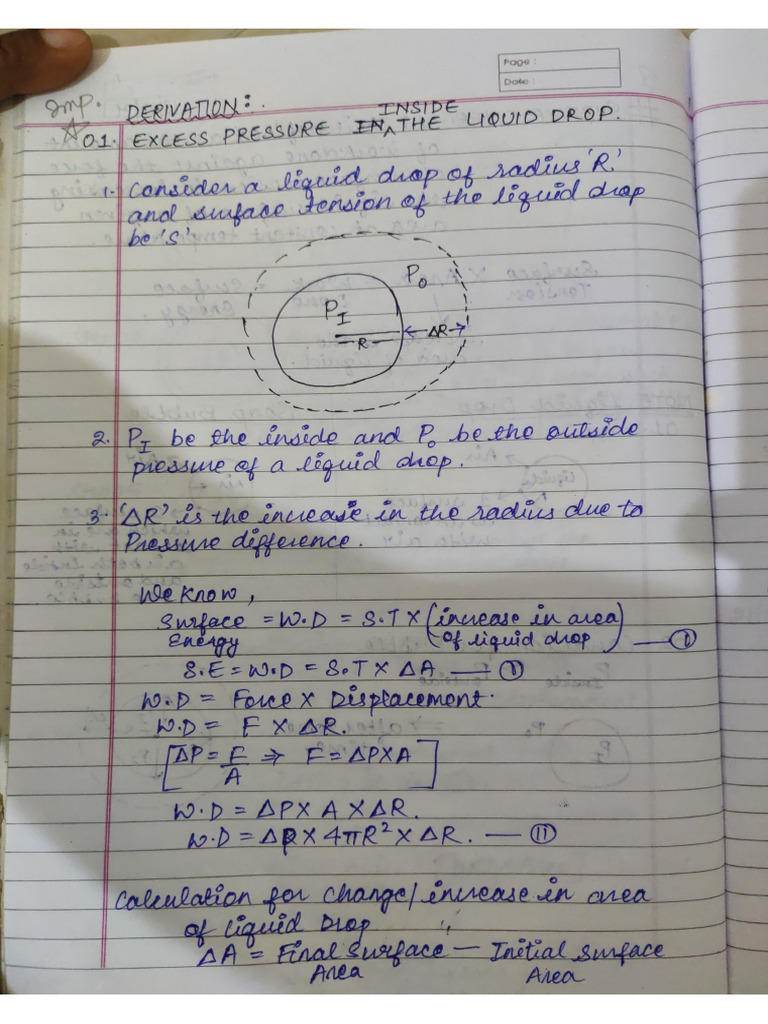 Page :
Date :
Imp.
DERIVATION:.
01. EXCESS PRESSURE INSIDE THE LIQUID DROP.
1. Consider a liquid drop of radius 'R'
and surface tension of the liquid drop
be 'S'
P₀
P_I
R
ΔR
2. P_I be the inside and P₀ be the outside
pressure of a liquid drop.
3. 'ΔR' is the increase in the radius due to
Pressure difference.
We know,
Surface Energy = W.D = S.T × (increase in area of liquid drop) — (I)
S.E = W.D = S.T × ΔA — (I)
W.D = Force × Displacement.
W.D = F × ΔR.
[ΔP = F/A ⇒ F = ΔP×A]
W.D = ΔP × A × ΔR.
W.D = ΔP × 4πR² × ΔR. — (II)
Calculation for change/increase in area
of liquid Drop
ΔA = Final Surface Area — Initial Surface Area